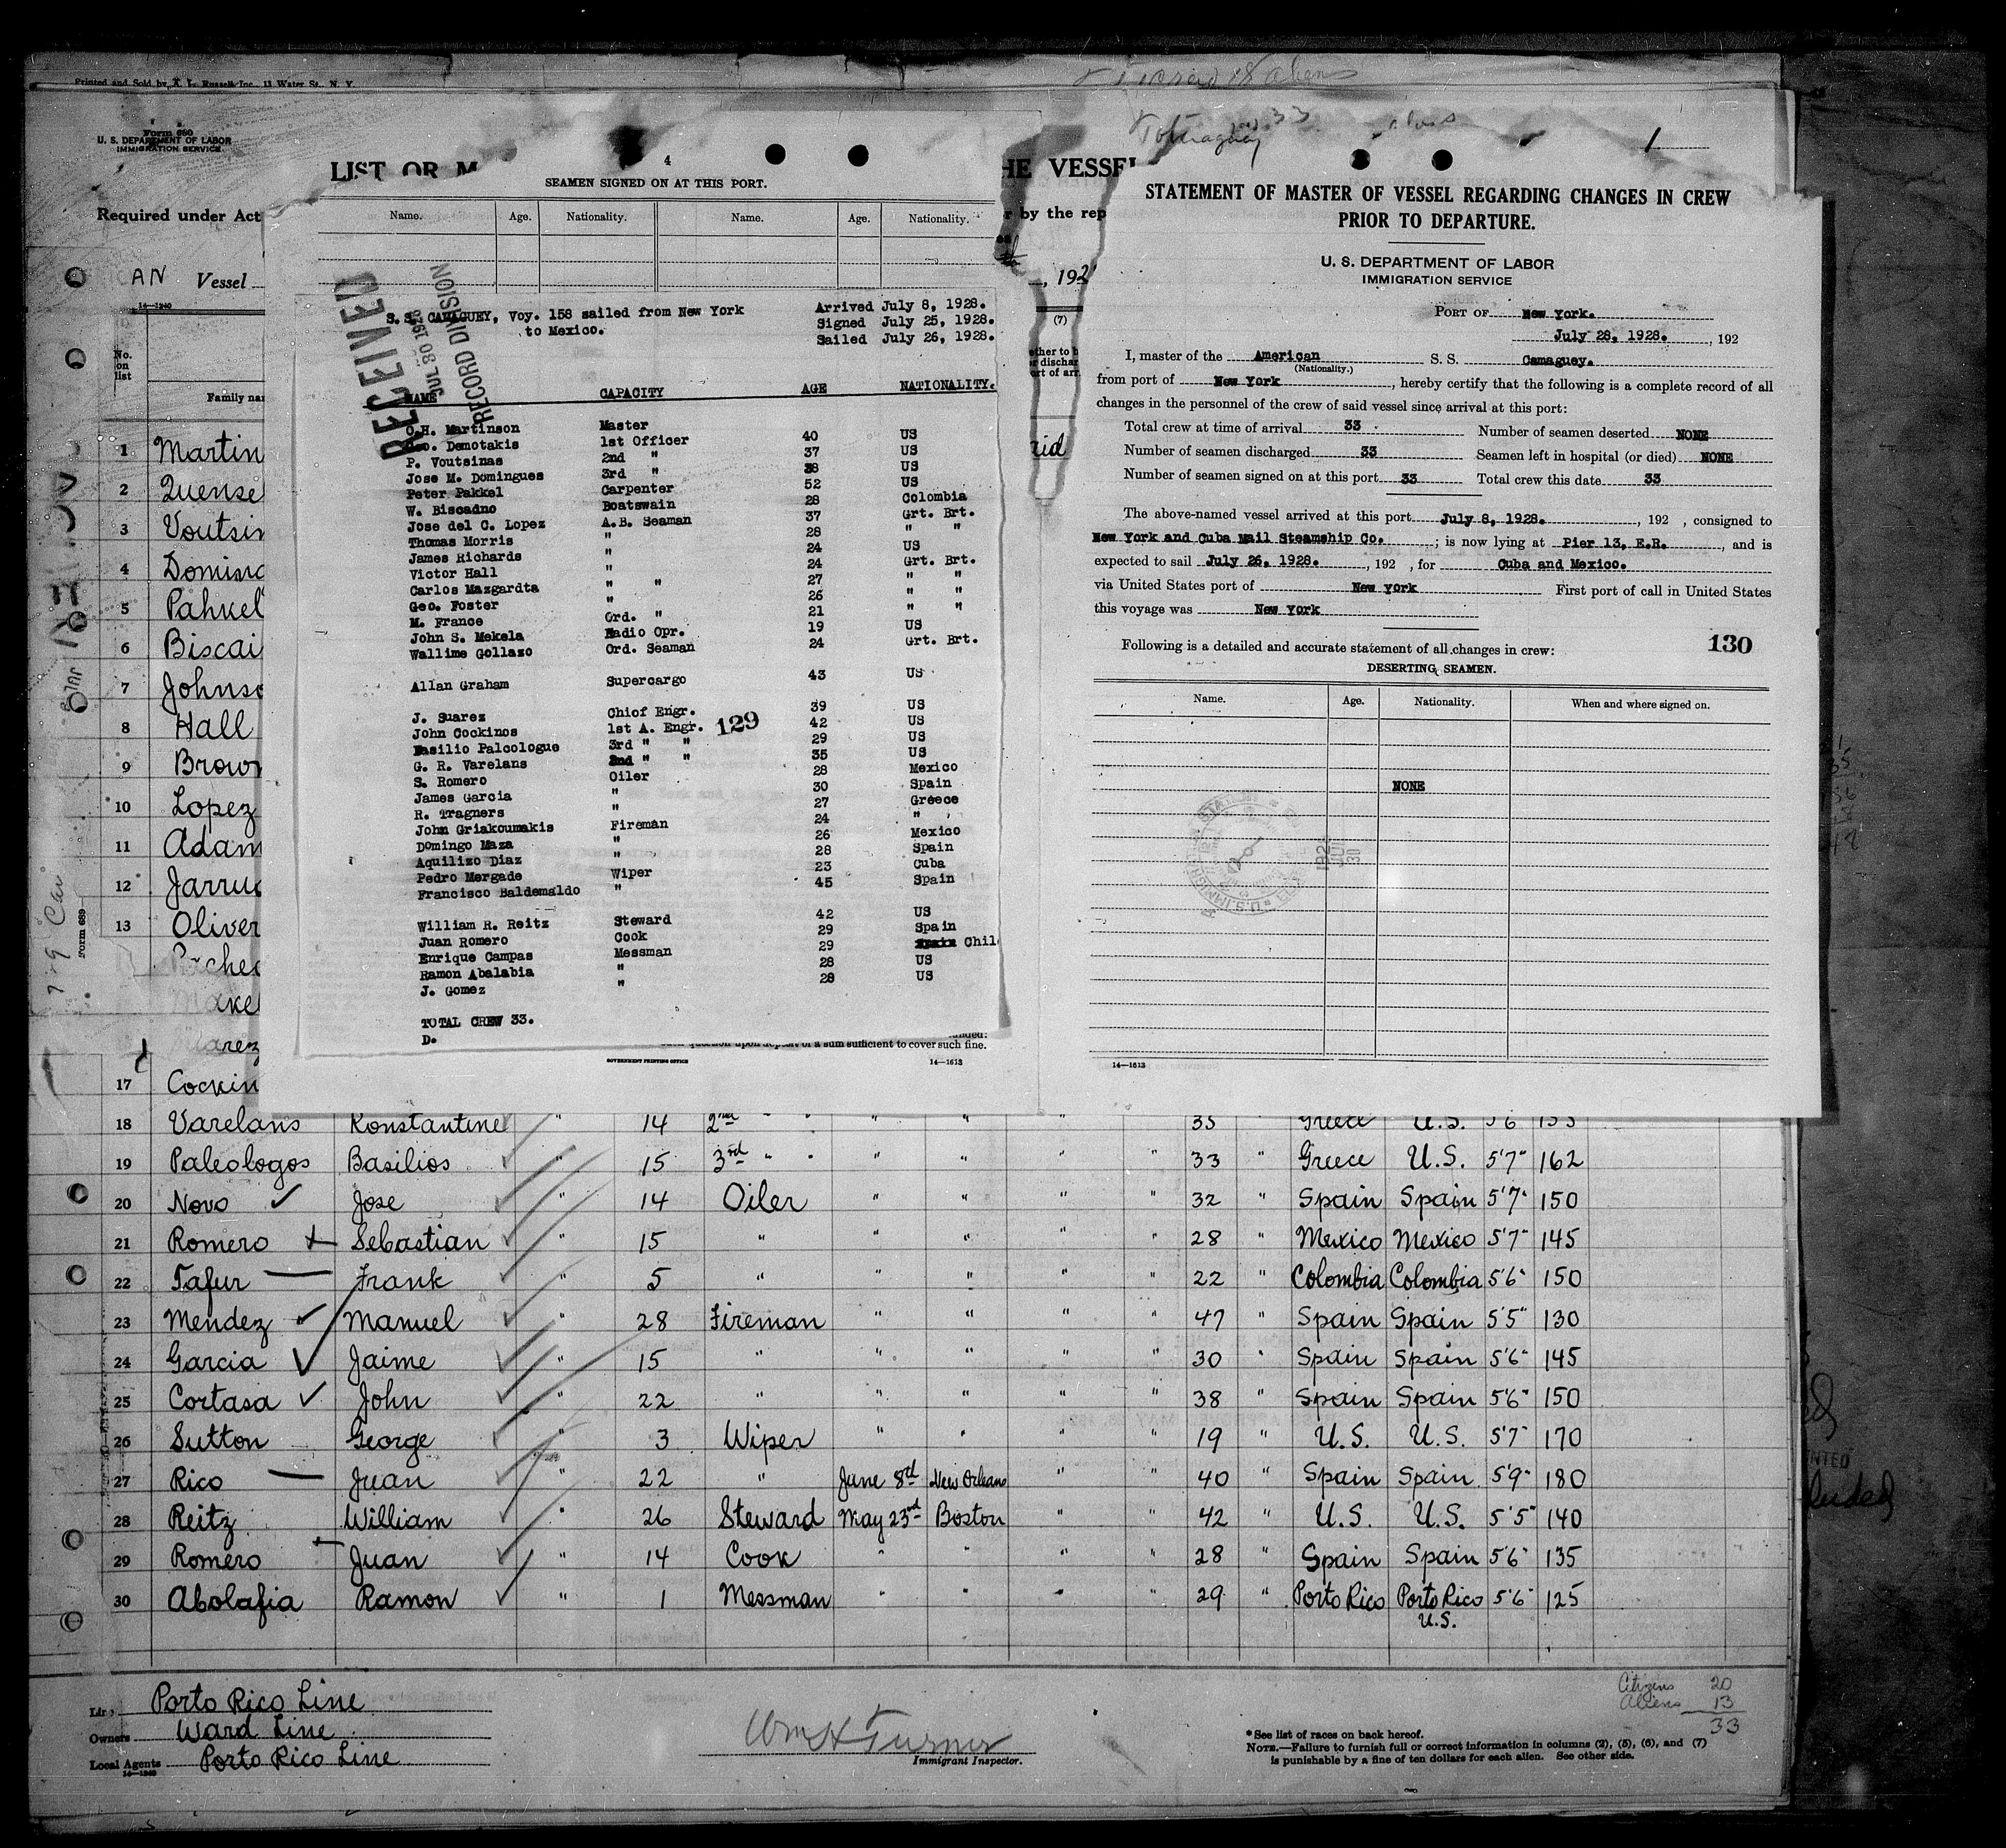 Printed and Sold by A. L. Russell Inc., 13 Water St., N. Y.
Form 680
U. S. DEPARTMENT OF LABOR
IMMIGRATION SERVICE
LIST OR M
HE VESSE
Required under Act
r by the rep
AN Vessel
14—1240
, 192
(7)
No. on list
Family na
1 Martin
2 Quense
3 Voutsin
4 Doming
5 Pahkel
6 Biscai
7 Johnso
8 Hall
9 Brown
10 Lopez
11 Adam
12 Jarru
13 Oliver
Pachec
Make
Suarez
17 Cockin
Form 689
4
SEAMEN SIGNED ON AT THIS PORT.
Name. Age. Nationality. Name. Age. Nationality.
RECEIVED
JUL 30 1928
RECORD DIVISION
S.S. CAMAGUEY, Voy. 158 sailed from New York
to Mexico.
Arrived July 8, 1928.
Signed July 25, 1928.
Sailed July 26, 1928.
NAME CAPACITY AGE NATIONALITY.
O.H. Martinson Master 40 US
Geo. Demotakis 1st Officer 37 US
P. Voutsinas 2nd " 38 US
Jose M. Domingues 3rd " 52 US
Peter Pakkel Carpenter 28 Colombia
W. Biscadno Boatswain 37 Grt. Brt.
Jose del C. Lopez A.B. Seaman 28 " "
Thomas Morris " 24 US
James Richards " 24 Grt. Brt.
Victor Hall " 27 " "
Carlos Mazgardta " " 26 " "
Geo. Foster " 21 " "
M. France Ord. " 19 US
John S. Mekela Radio Opr. 24 Grt. Brt.
Wallime Gollazo Ord. Seaman
Allan Graham Supercargo 43 US
J. Suarez Chief Engr. 39 US
John Cockinos 1st A. Engr. 42 US
129
Basilio Palcologue 3rd " " 29 US
G. R. Varelans 2nd " " 35 US
S. Romero Oiler 28 Mexico
James Garcia " 30 Spain
R. Tragners " 27 Greece
John Griakoumakis Fireman 24 "
Domingo Maza " 26 Mexico
Aquilizo Diaz " 28 Spain
Pedro Mergade Wiper 23 Cuba
Francisco Baldemaldo " 45 Spain
William R. Reitz Steward 42 US
Juan Romero Cook 29 Spain
Enrique Campas Messman 29 Chil
Ramon Abalabia " 28 US
J. Gomez " 28 US
TOTAL CREW 33.
D.
question upon deposit of a sum sufficient to cover such fine.
GOVERNMENT PRINTING OFFICE
14—1613
1
STATEMENT OF MASTER OF VESSEL REGARDING CHANGES IN CREW
PRIOR TO DEPARTURE.
U. S. DEPARTMENT OF LABOR
IMMIGRATION SERVICE
PORT OF New York.
July 28, 1928. , 192
I, master of the American S. S. Camaguey.
(Nationality.)
from port of New York , hereby certify that the following is a complete record of all
changes in the personnel of the crew of said vessel since arrival at this port:
Total crew at time of arrival 33 . Number of seamen deserted NONE
Number of seamen discharged 33 Seamen left in hospital (or died) NONE
Number of seamen signed on at this port 33 Total crew this date 33
The above-named vessel arrived at this port July 8, 1928. , 192 , consigned to
New York and Cuba Mail Steamship Co. ; is now lying at Pier 13, E.R. , and is
expected to sail July 26, 1928. , 192 , for Cuba and Mexico.
via United States port of New York First port of call in United States
this voyage was New York
Following is a detailed and accurate statement of all changes in crew:
130
DESERTING SEAMEN.
Name. Age. Nationality. When and where signed on.
NONE
14—1613
18 Varelans Konstantine " 14 2nd " " " " " " 35 " Greece U.S. 5'6" 155
19 Paleologos Basilios " 15 3rd " " " " " " 33 " Greece U.S. 5'7" 162
20 Novo Jose " 14 Oiler " " " " 32 " Spain Spain 5'7" 150
21 Romero Sebastian " 15 " " " " " 28 " Mexico Mexico 5'7" 145
22 Tafur Frank " 5 " " " " " 22 " Colombia Colombia 5'6" 150
23 Mendez Manuel " 28 Fireman " " " " 47 " Spain Spain 5'5" 130
24 Garcia Jaime " 15 " " " " " 30 " Spain Spain 5'6" 145
25 Cortasa John " 22 " " " " " 38 " Spain Spain 5'6" 150
26 Sutton George " 3 Wiper " " " " 19 " U.S. U.S. 5'7" 170
27 Rico Juan " 22 " June 8th New Orleans " " 40 " Spain Spain 5'9" 180
28 Reitz William " 26 Steward May 23rd Boston " " 42 " U.S. U.S. 5'5" 140
29 Romero Juan " 14 Cook " " " " 28 " Spain Spain 5'6" 135
30 Abolafia Ramon " 1 Messman " " " " 29 " Porto Rico Porto Rico 5'6" 125
U.S.
Line Porto Rico Line
Owners Ward Line
Local Agents Porto Rico Line
14—1240
Wm H Turner
Immigrant Inspector.
Citizens 20
Aliens 13
33
* See list of races on back hereof.
NOTE.—Failure to furnish full or correct information in columns (2), (5), (6), and (7)
is punishable by a fine of ten dollars for each alien. See other side.